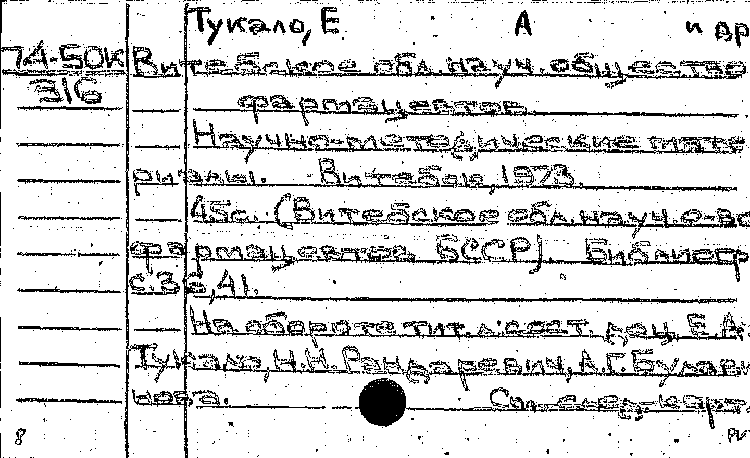 Тукало, Е А и др
74-50К Витебское обл. науч. общество
316 фармацевтов.
Научно-методические мате
риалы. Витебск, 1973.
45с. (Витебское обл. науч. о-во
фармацевтов БССР). Библиогр
с. 38, 41.
На обороте тит. л: сост. доц. Е.А.
Тукало, Н.Н. Рандаревич, А.Г. Булави
нова.
См. след. карт.
8